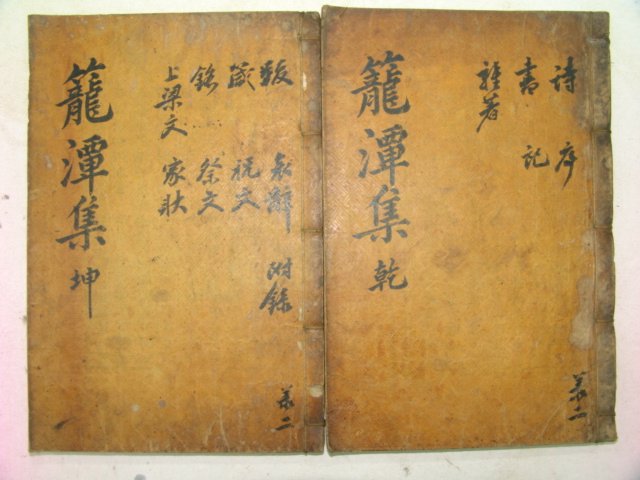 詩 序
書 記
雜著
籠潭集 乾
共二
跋 哀辭 附錄
箴 祝文
銘 祭文
上梁文 家狀
籠潭集 坤
共二